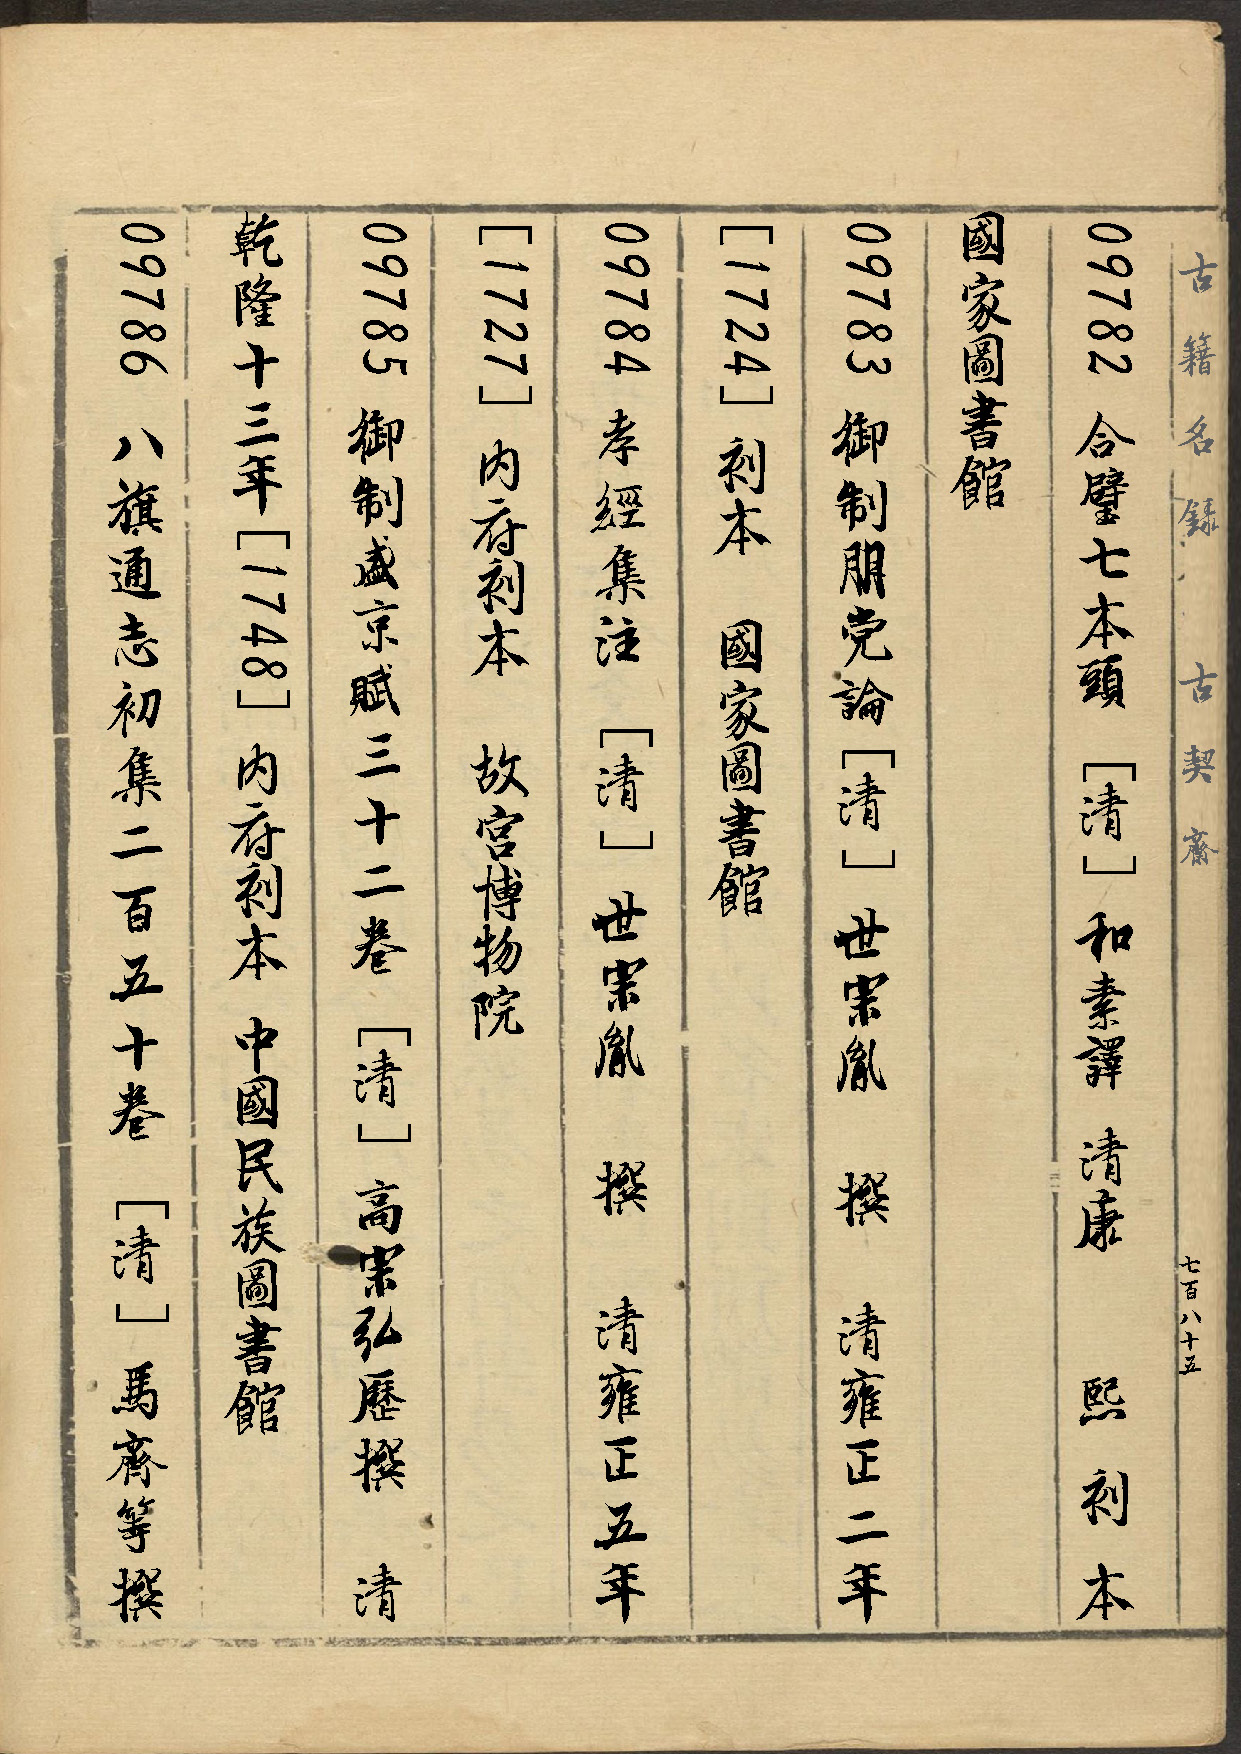 古籍名錄 古契齋
七百八十五
09782 合璧七本頭 [清] 和素譯 清康 熙 刻 本
國家圖書館
09783 御制朋党論[清] 世宗胤 撰 清雍正二年
[1724]刻本 國家圖書館
09784 孝經集注 [清] 世宗胤 撰 清雍正五年
[1727] 内府刻本 故宫博物院
09785 御制盛京賦三十二卷 [清]高宗弘歷撰 清
乾隆十三年[1748] 内府刻本 中國民族圖書館
09786 八旗通志初集二百五十卷 [清] 馬齊等撰